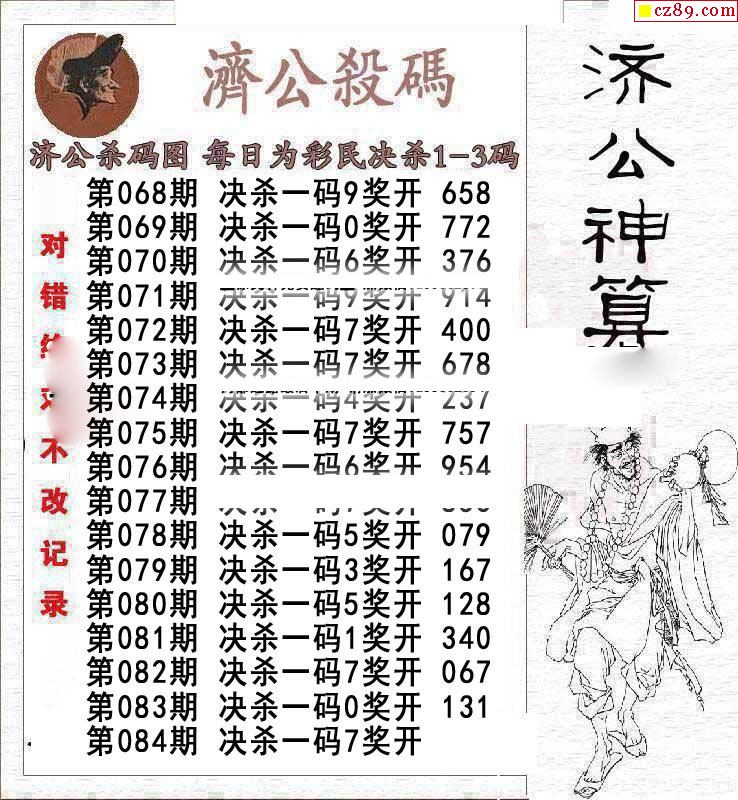 cz89.com
濟公殺碼
济公杀码图 每日为彩民决杀1-3码
第068期 决杀一码9奖开 658
第069期 决杀一码0奖开 772
第070期 决杀一码6奖开 376
第071期 决杀一码9奖开 914
第072期 决杀一码7奖开 400
第073期 决杀一码7奖开 678
第074期 决杀一码4奖开 237
第075期 决杀一码7奖开 757
第076期 决杀一码6奖开 954
第077期
第078期 决杀一码5奖开 079
第079期 决杀一码3奖开 167
第080期 决杀一码5奖开 128
第081期 决杀一码1奖开 340
第082期 决杀一码7奖开 067
第083期 决杀一码0奖开 131
第084期 决杀一码7奖开
对错
不改记录
济公神算